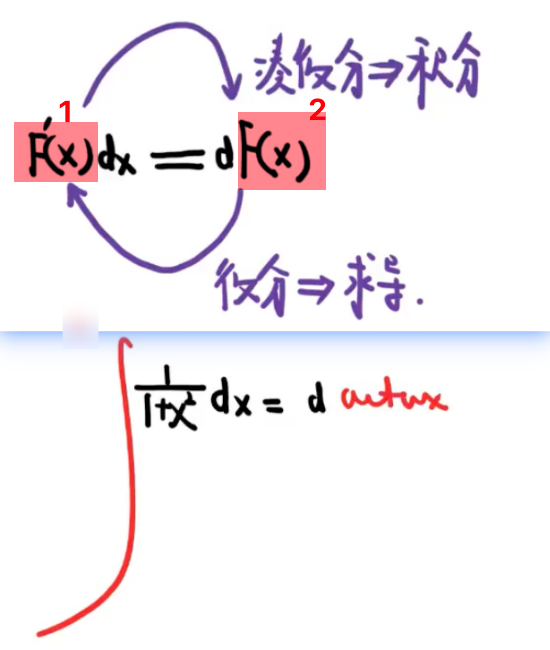 凑微分⇒积分
1 2
F'(x)dx = dF(x)
微分⇒求导.
∫ 1/(1+x²) dx = d arctanx